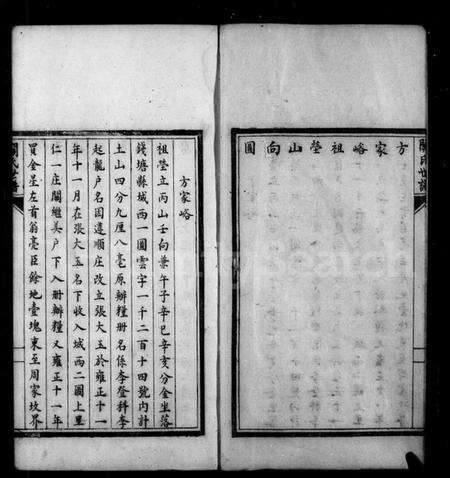 方家峪祖塋山向圖
方家峪
祖塋立丙山壬向兼午子辛巳辛亥分金坐落
錢塘縣城西一圖雲字一千二百十四號內計
土山四分九厘八毫原辦糧册名係李登科李
起龍户名因遵順庄改立張大玉於雍正十一
年十一月在張大玉名下收入城西二圖上里
仁一庄關繼美户下入册辦糧又雍正十一年
買金星左首翁亮臣餘地壹塊東至周家坟界